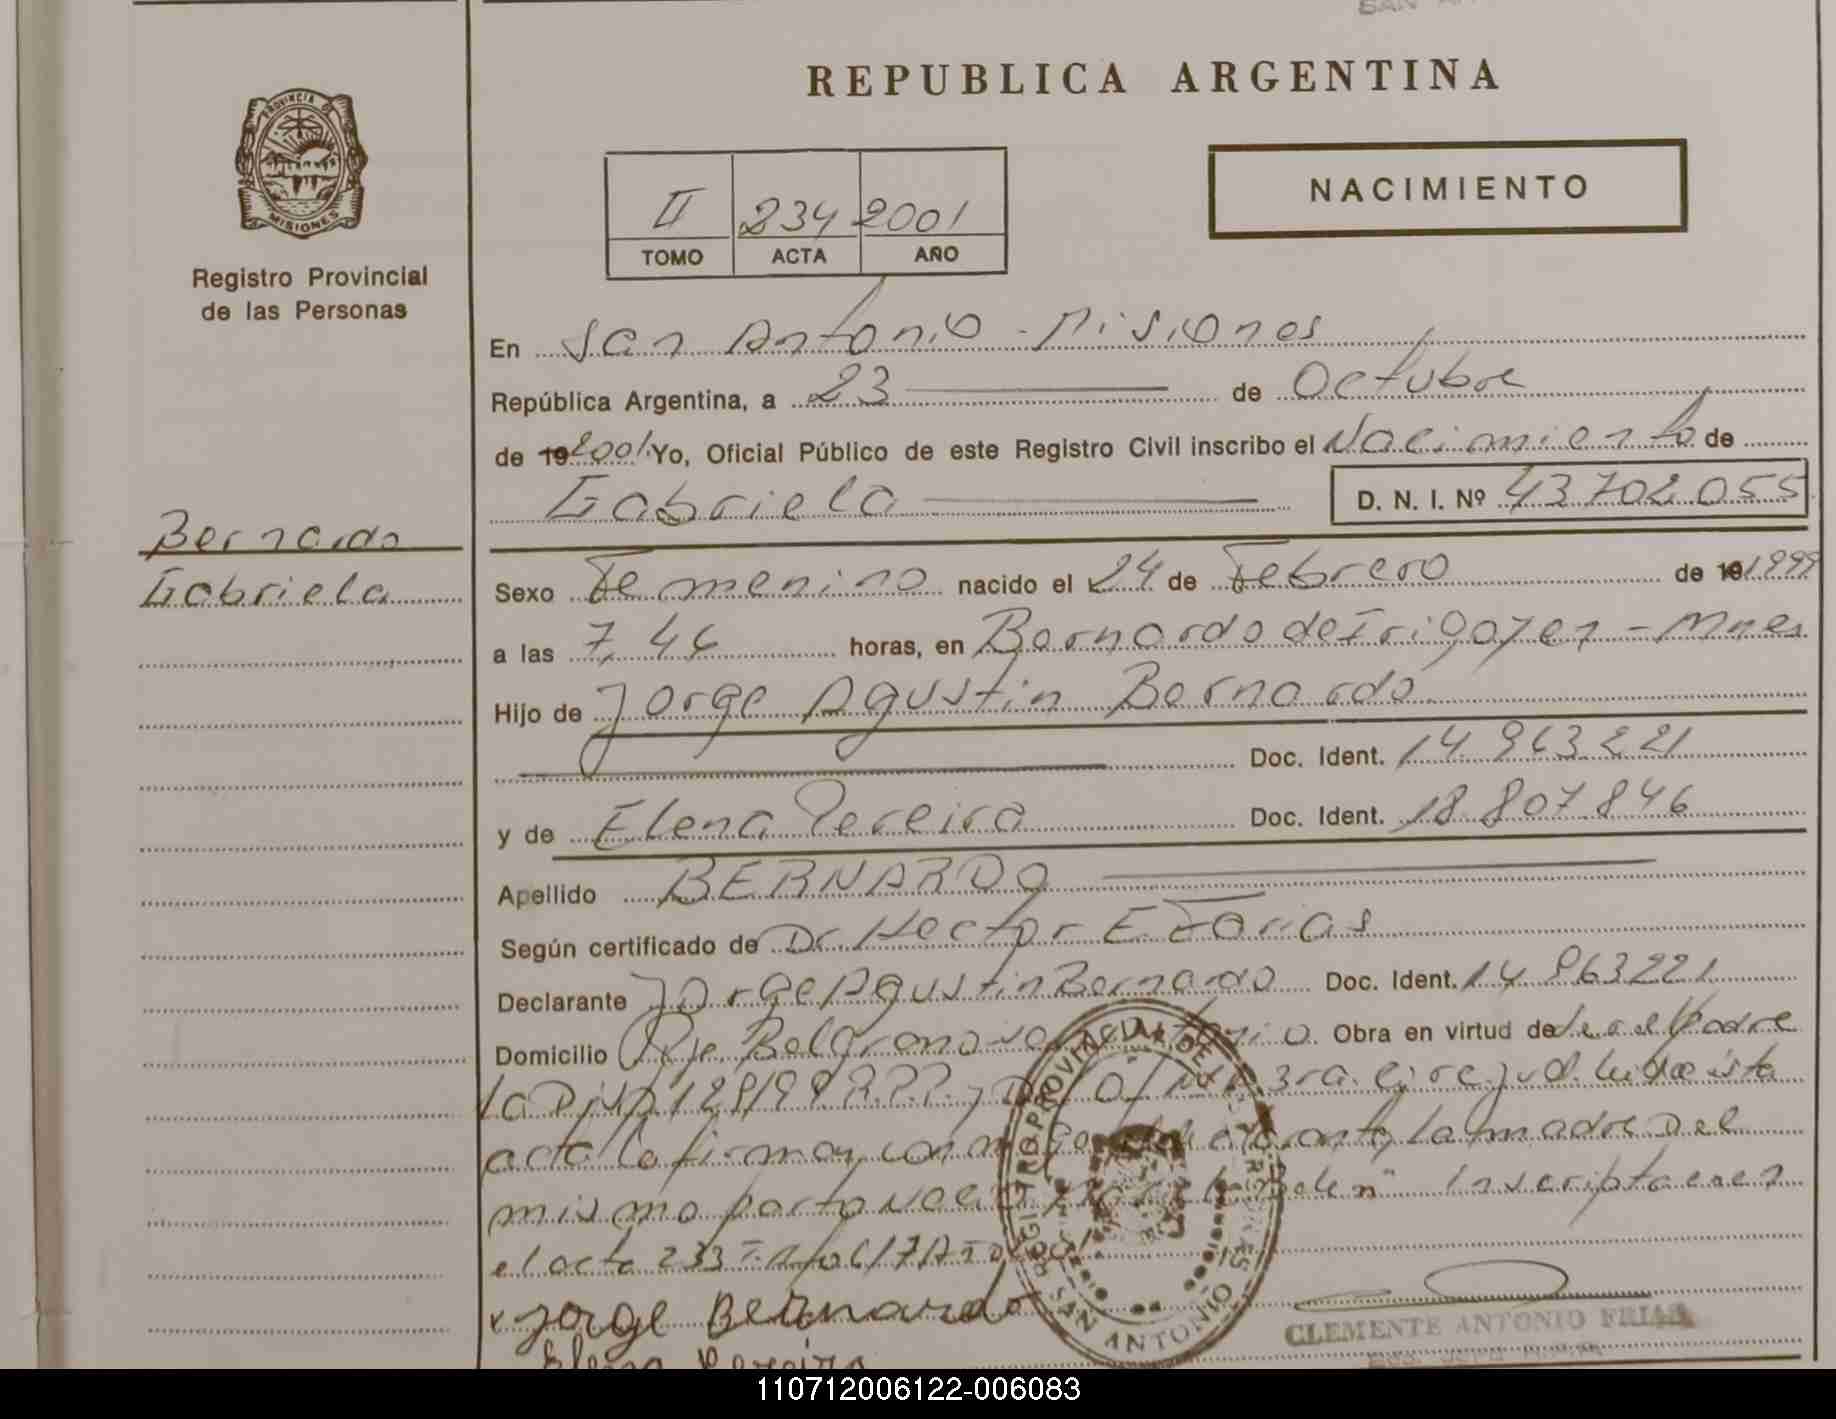 REPUBLICA ARGENTINA
PROVINCIA DE
MISIONES
Registro Provincial
de las Personas
II 234 2001
TOMO ACTA AÑO
NACIMIENTO
En San Antonio - Misiones
República Argentina, a 23 de Octubre
de 19 2001 Yo, Oficial Público de este Registro Civil inscribo el Nacimiento de
Gabriela D. N. I. Nº 43702055
Bernardo
Gabriela
Sexo Femenino nacido el 24 de Febrero de 19 1999
a las 7,46 horas, en Bernardo de Irigoyen - Mnes
Hijo de Jorge Agustin Bernardo
Doc. Ident. 14.963221
y de Elena Pereira Doc. Ident. 18.807846
Apellido BERNARDO
Según certificado de Dr. Hector E. Farias
Declarante Jorge Agustin Bernardo Doc. Ident. 14 963221
Domicilio Belgrano Obra en virtud de Padre
acta la firman la madre del
mismo parto "Belen" Inscripta en
el acta 233
Jorge Bernardo
Elena Pereira
REGISTRO PROVINCIAL DE LAS PERSONAS
SAN ANTONIO
CLEMENTE ANTONIO FRIAS
110712006122-006083